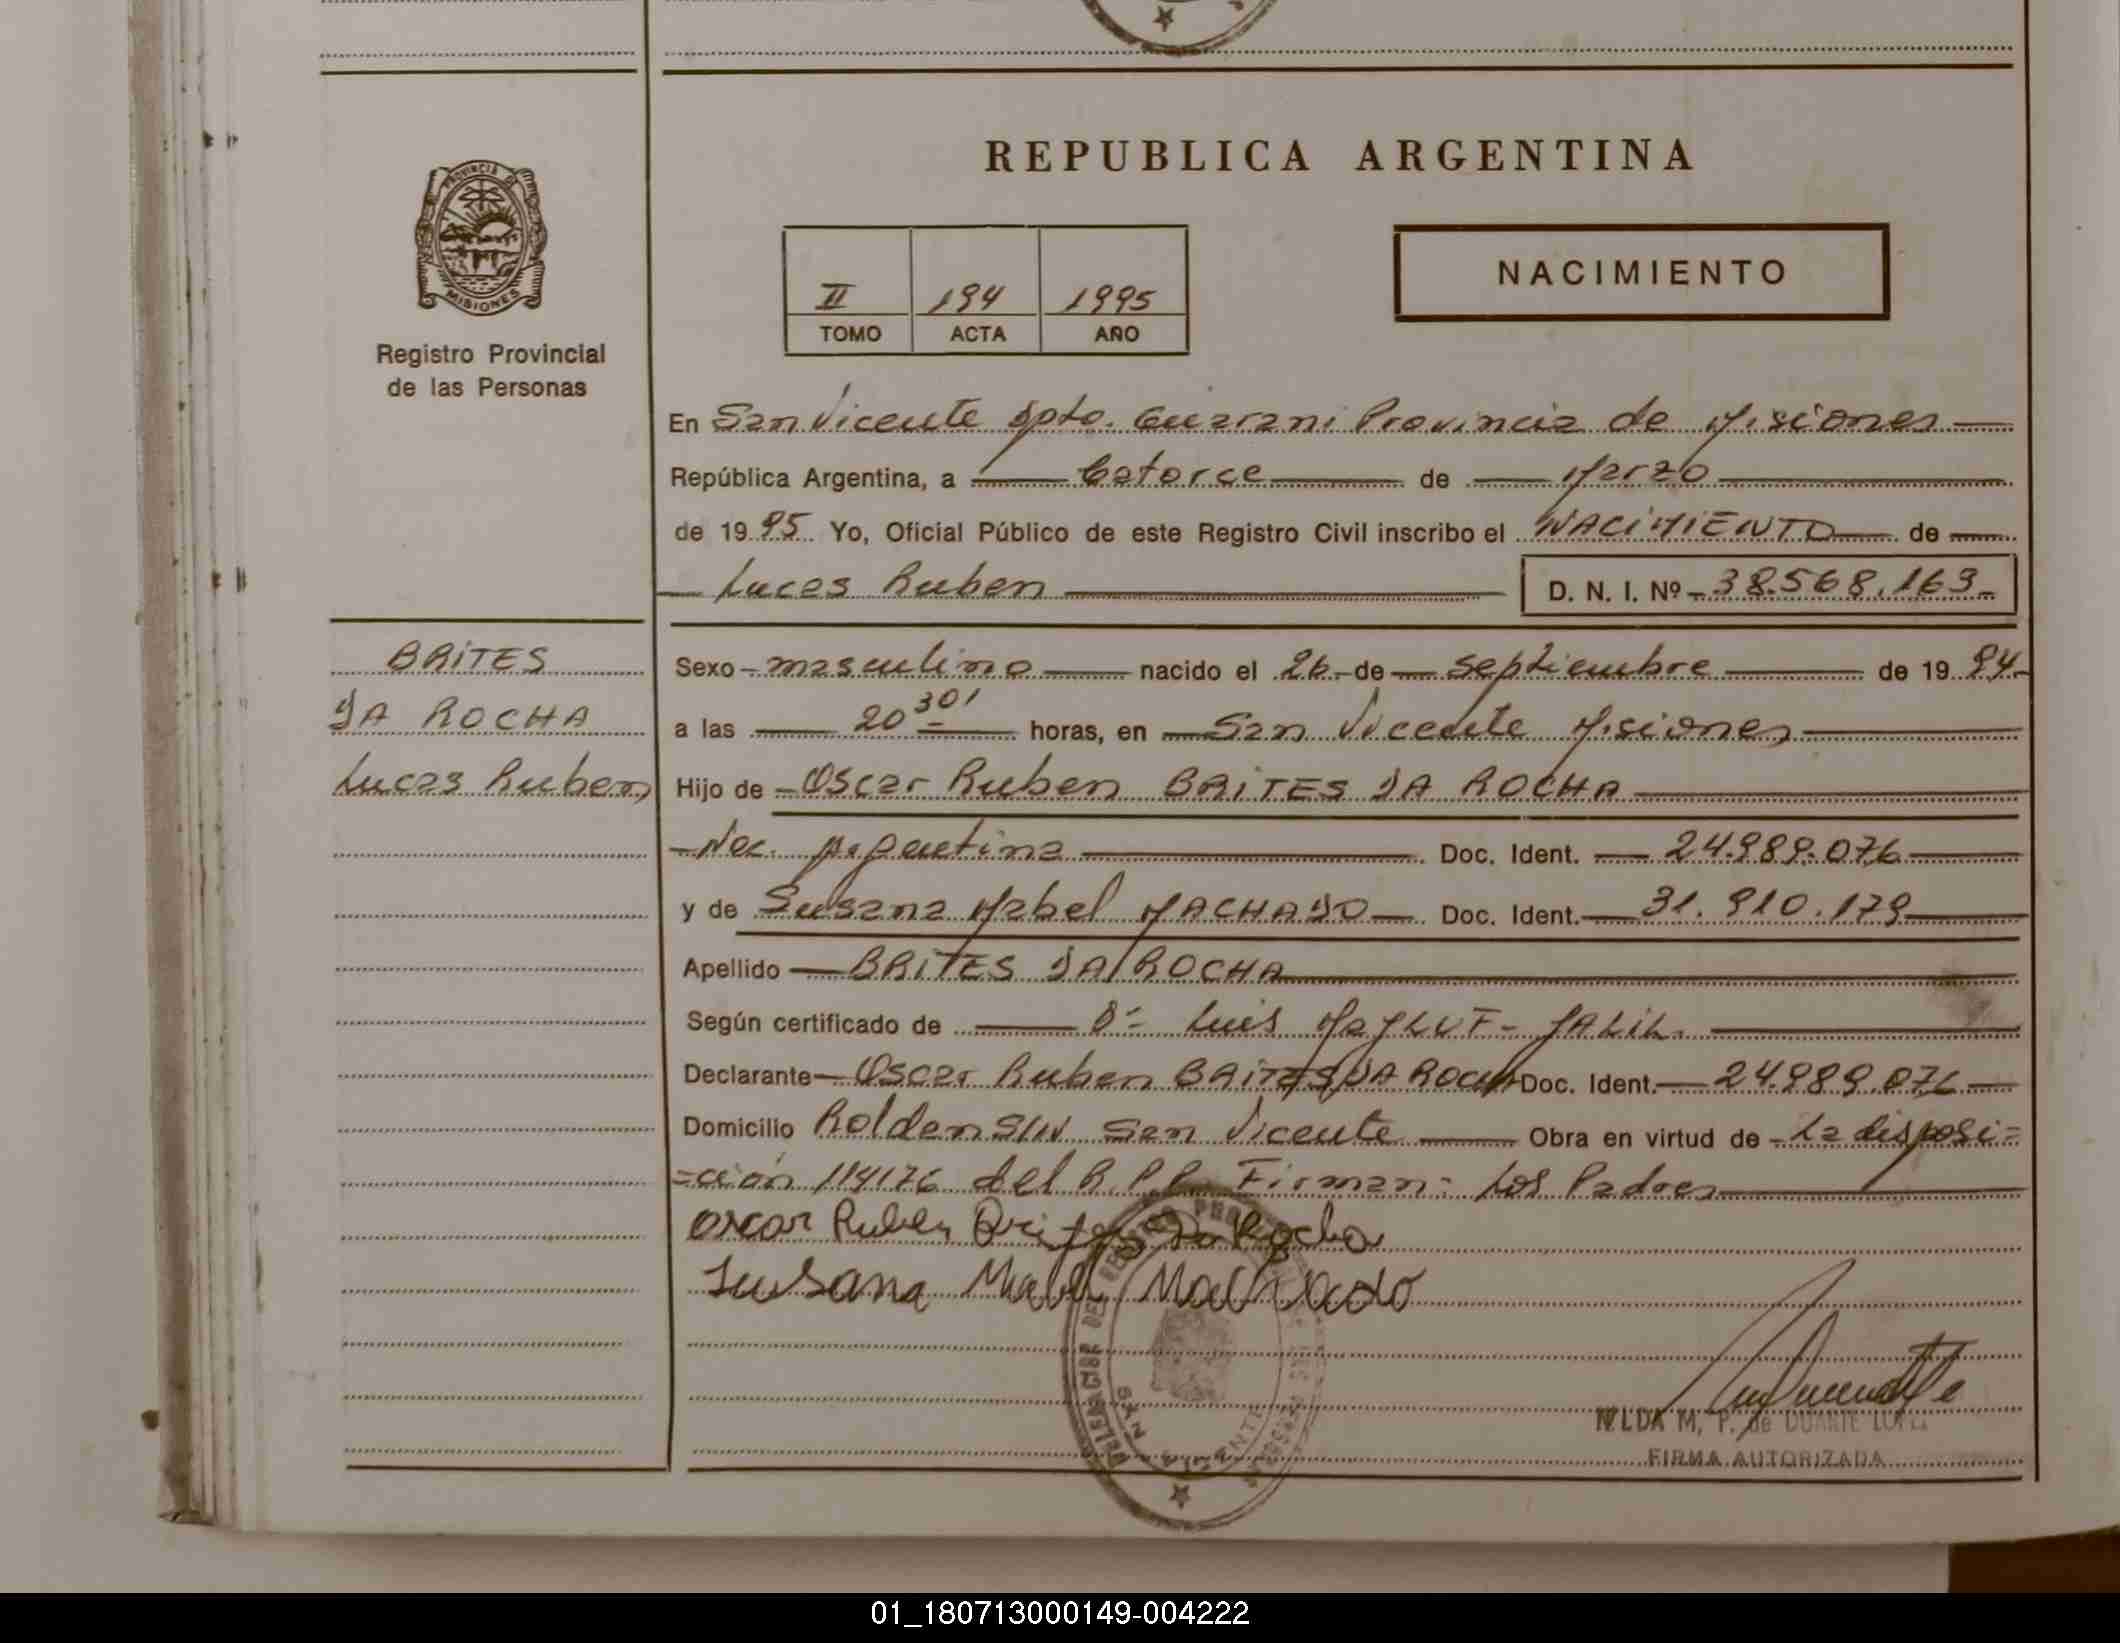 REPUBLICA ARGENTINA
PROVINCIA DE
MISIONES
Registro Provincial
de las Personas
II 194 1995
TOMO ACTA AÑO
NACIMIENTO
En San Vicente Dpto. Guarani Provincia de Misiones
República Argentina, a Catorce de Marzo
de 1995 Yo, Oficial Público de este Registro Civil inscribo el NACIMIENTO de
Lucas Ruben D. N. I. Nº 38.568.163
BRITES
DA ROCHA
Lucas Ruben
Sexo masculino nacido el 26 de septiembre de 1994
a las 20 30' horas, en San Vicente Misiones
Hijo de Oscar Ruben BRITES DA ROCHA
Nac. Argentina Doc. Ident. 24.989.076
y de Susana Mabel MACHADO Doc. Ident. 31.910.179
Apellido BRITES DA ROCHA
Según certificado de Dr Luis JALIL.
Declarante Oscar Ruben BRITES DA ROCHA Doc. Ident. 24.989.076
Domicilio Roldan S/N San Vicente Obra en virtud de La disposi=
=ción 114176 del R.P.P. Firman: Los Padres
Oscar Ruben Brites Da Rocha
Susana Mabel Machado
SAN VICENTE
NILDA M, P. de DUARTE LOPEZ
FIRMA AUTORIZADA
01_180713000149-004222